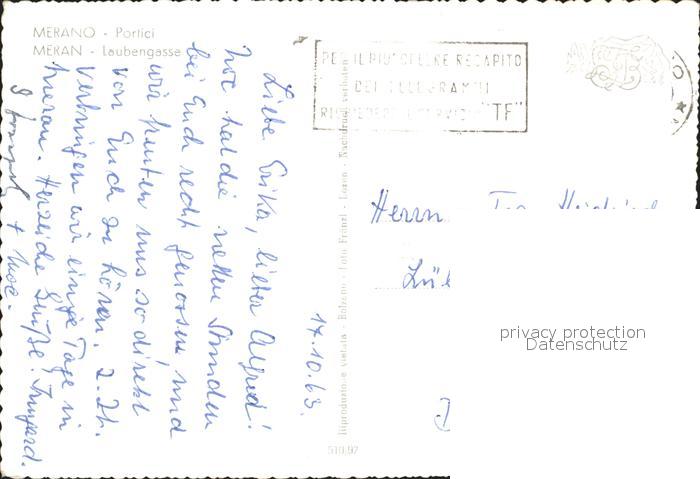 MERANO - Portici
MERAN - Laubengasse
PER IL PIU' CELERE RECAPITO
DEI TELEGRAMMI
RICHIEDERE IL SERVIZIO "TF"
17.10.63.
Liebe Erika, lieber Alfred!
hat die netten Stunden
bei Euch recht genossen und
wir freuten uns so direkt
von Euch zu hören. Z. Zt.
verbringen wir einige Tage in
Meran. Herzliche Grüße! Irmgard.
Riproduzione vietata - Bolzano - Foto Fränzl - Bozen - Nachdruck verboten
510.97
Herrn
privacy protection
Datenschutz